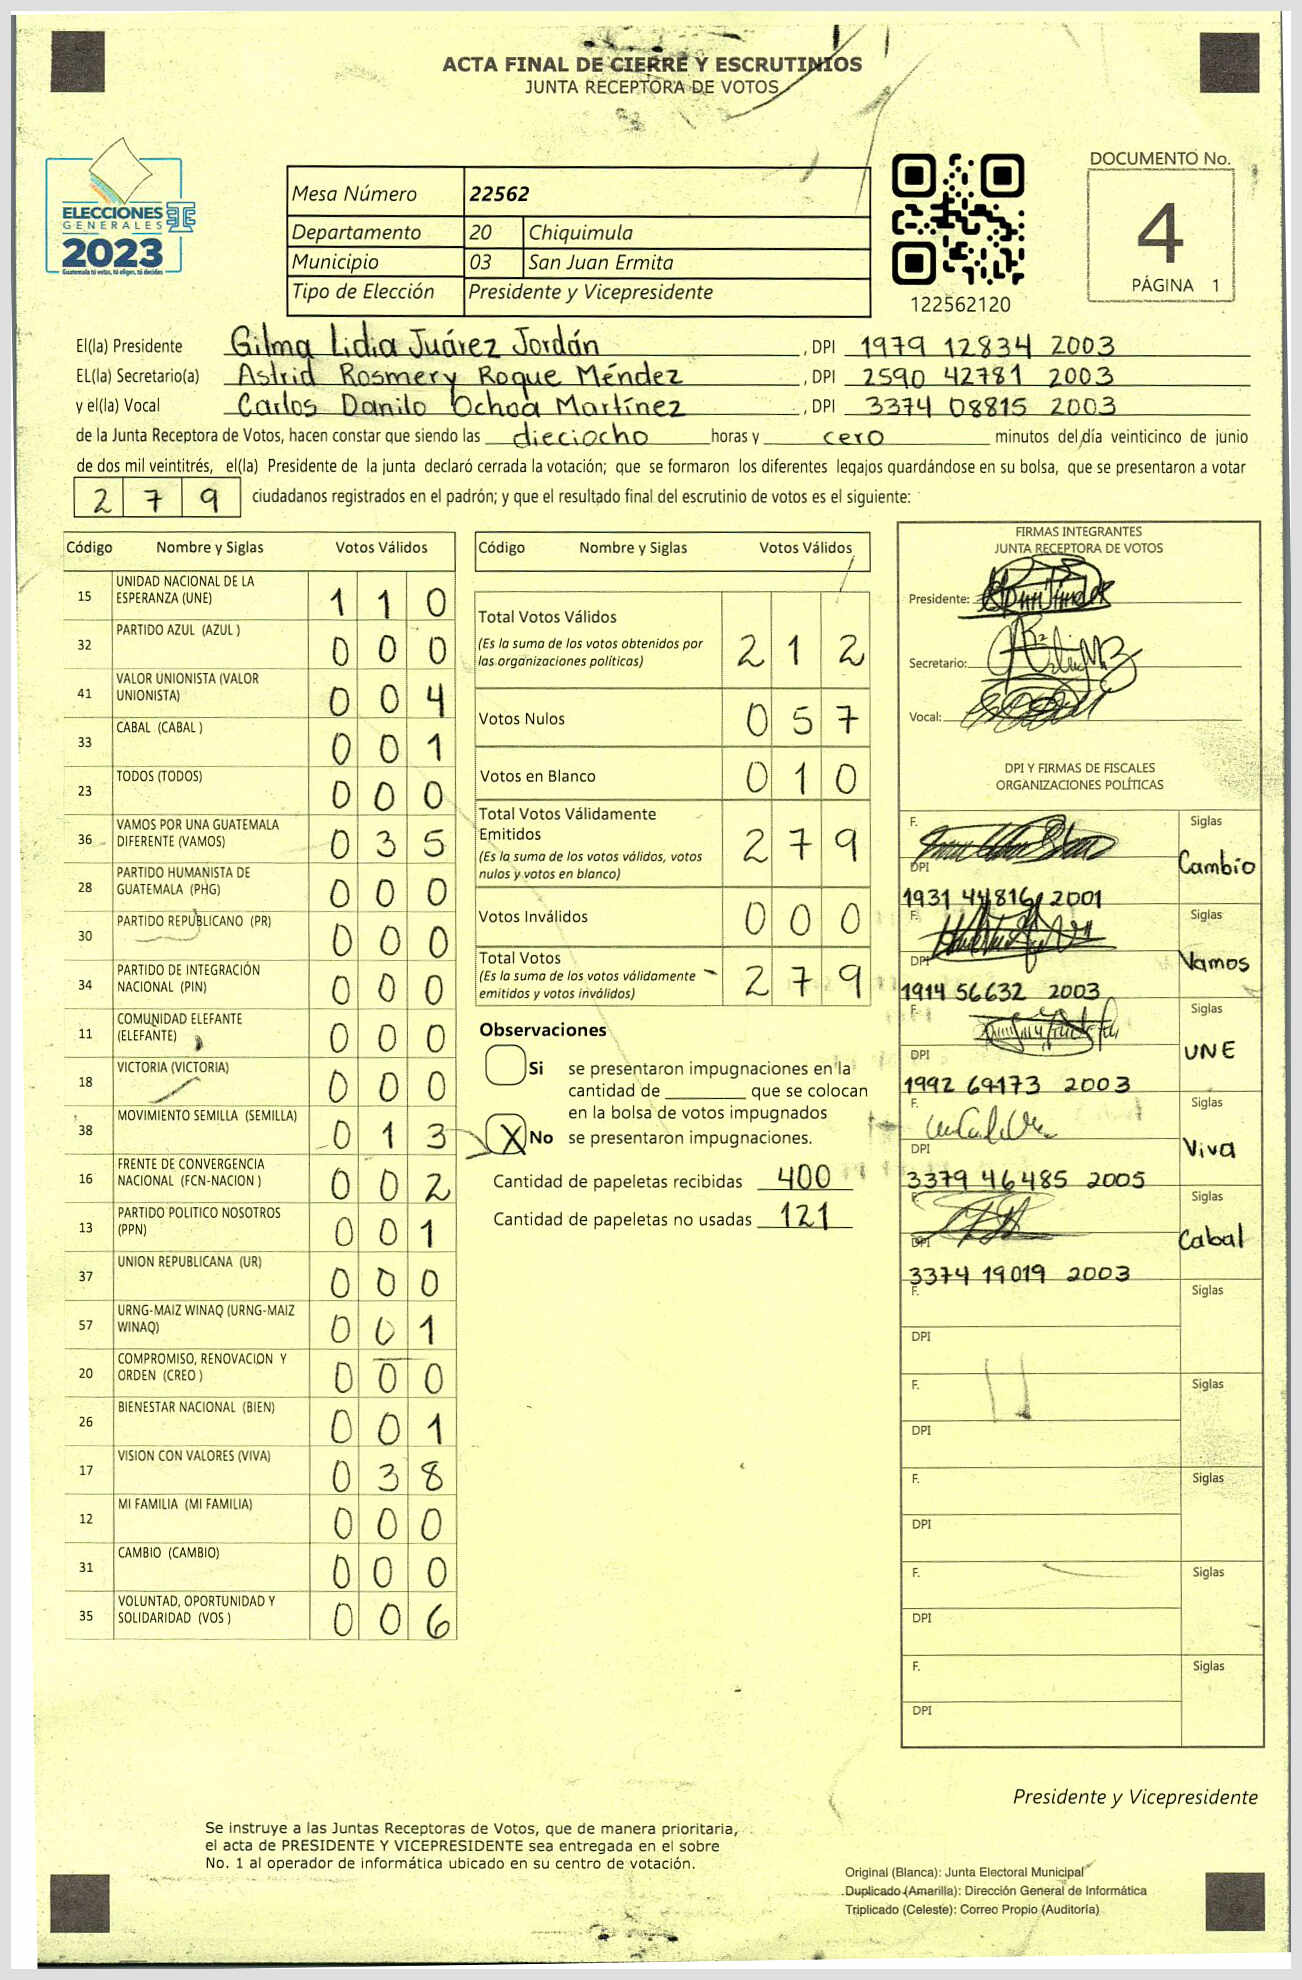 ACTA FINAL DE CIERRE Y ESCRUTINIOS
JUNTA RECEPTORA DE VOTOS
ELECCIONES
GENERALES
2023
Guatemala tú votas, tú eliges, tú decides
Mesa Número 22562
Departamento 20 Chiquimula
Municipio 03 San Juan Ermita
Tipo de Elección Presidente y Vicepresidente
122562120
DOCUMENTO No.
4
PÁGINA 1
El(la) Presidente Gilma Lidia Juárez Jordán , DPI 1979 12834 2003
EL(la) Secretario(a) Astrid Rosmery Roque Méndez , DPI 2590 42781 2003
y el(la) Vocal Carlos Danilo Ochoa Martínez , DPI 3374 08815 2003
de la Junta Receptora de Votos, hacen constar que siendo las dieciocho horas y cero minutos del día veinticinco de junio
de dos mil veintitrés, el(la) Presidente de la junta declaró cerrada la votación; que se formaron los diferentes legajos guardándose en su bolsa, que se presentaron a votar
2 7 9 ciudadanos registrados en el padrón; y que el resultado final del escrutinio de votos es el siguiente:
Código Nombre y Siglas Votos Válidos
15 UNIDAD NACIONAL DE LA ESPERANZA (UNE) 1 1 0
32 PARTIDO AZUL (AZUL ) 0 0 0
41 VALOR UNIONISTA (VALOR UNIONISTA) 0 0 4
33 CABAL (CABAL ) 0 0 1
23 TODOS (TODOS) 0 0 0
36 VAMOS POR UNA GUATEMALA DIFERENTE (VAMOS) 0 3 5
28 PARTIDO HUMANISTA DE GUATEMALA (PHG) 0 0 0
30 PARTIDO REPUBLICANO (PR) 0 0 0
34 PARTIDO DE INTEGRACIÓN NACIONAL (PIN) 0 0 0
11 COMUNIDAD ELEFANTE (ELEFANTE) 0 0 0
18 VICTORIA (VICTORIA) 0 0 0
38 MOVIMIENTO SEMILLA (SEMILLA) 0 1 3
16 FRENTE DE CONVERGENCIA NACIONAL (FCN-NACION ) 0 0 2
13 PARTIDO POLITICO NOSOTROS (PPN) 0 0 1
37 UNION REPUBLICANA (UR) 0 0 0
57 URNG-MAIZ WINAQ (URNG-MAIZ WINAQ) 0 0 1
20 COMPROMISO, RENOVACION Y ORDEN (CREO ) 0 0 0
26 BIENESTAR NACIONAL (BIEN) 0 0 1
17 VISION CON VALORES (VIVA) 0 3 8
12 MI FAMILIA (MI FAMILIA) 0 0 0
31 CAMBIO (CAMBIO) 0 0 0
35 VOLUNTAD, OPORTUNIDAD Y SOLIDARIDAD (VOS ) 0 0 6
Código Nombre y Siglas Votos Válidos
Total Votos Válidos 2 1 2
(Es la suma de los votos obtenidos por
las organizaciones políticas)
Votos Nulos 0 5 7
Votos en Blanco 0 1 0
Total Votos Válidamente
Emitidos 2 7 9
(Es la suma de los votos válidos, votos
nulos y votos en blanco)
Votos Inválidos 0 0 0
Total Votos 2 7 9
(Es la suma de los votos válidamente
emitidos y votos inválidos)
Observaciones
Si se presentaron impugnaciones en la
cantidad de ________ que se colocan
en la bolsa de votos impugnados
X No se presentaron impugnaciones.
Cantidad de papeletas recibidas 400
Cantidad de papeletas no usadas 121
FIRMAS INTEGRANTES
JUNTA RECEPTORA DE VOTOS
Presidente:
Secretario:
Vocal:
DPI Y FIRMAS DE FISCALES
ORGANIZACIONES POLÍTICAS
F. Siglas
DPI Cambio
1931 44816 2001
F. Siglas
DPI Vamos
1914 56632 2003
F. Siglas
DPI UNE
1992 69173 2003
F. Siglas
DPI Viva
3379 46485 2005
F. Siglas
DPI Cabal
3374 19019 2003
F. Siglas
DPI
F. Siglas
DPI
F. Siglas
DPI
F. Siglas
DPI
F. Siglas
DPI
Presidente y Vicepresidente
Se instruye a las Juntas Receptoras de Votos, que de manera prioritaria,
el acta de PRESIDENTE Y VICEPRESIDENTE sea entregada en el sobre
No. 1 al operador de informática ubicado en su centro de votación.
Original (Blanca): Junta Electoral Municipal
Duplicado (Amarilla): Dirección General de Informática
Triplicado (Celeste): Correo Propio (Auditoría)